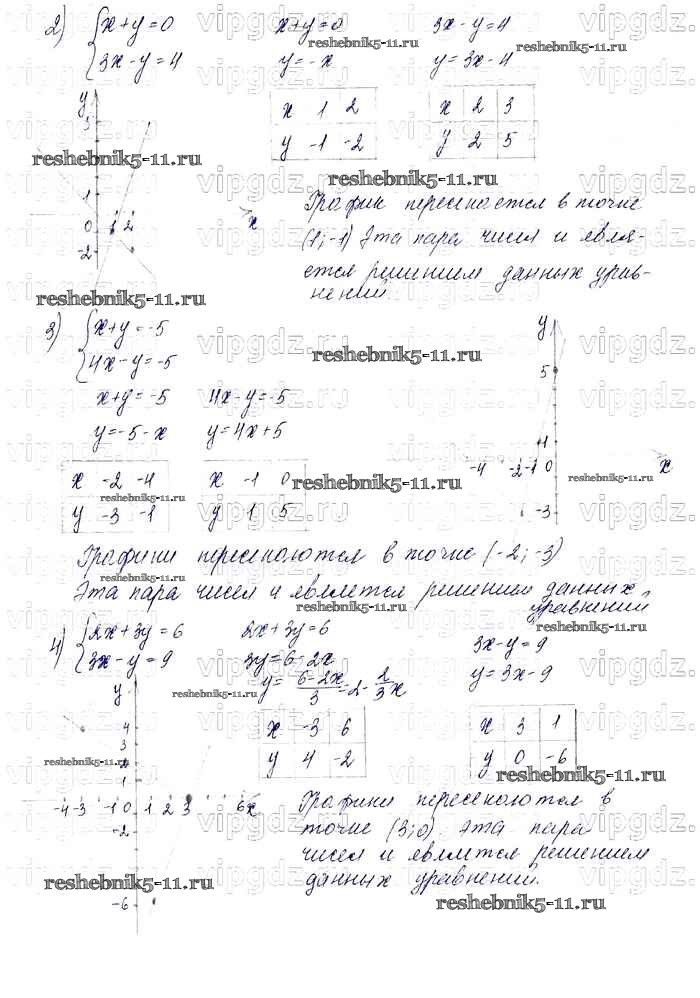 2) {x+y=0   x+y=0   3x-y=4
{3x-y=4   y=-x   y=3x-4
y
3
x 1 2   x 2 3
y -1 -2   y 2 5
reshebnik5-11.ru
1
0 1 2 x
-2
График пересекается в точке
(1;-1) Эта пара чисел и явля-
ется решением данных урав-
нений
3) {x+y=-5
{4x-y=-5
x+y=-5   4x-y=-5
y=-5-x   y=4x+5
x -2 -4   x -1 0
y -3 -1   y 1 5
y
5
1
-4 -2 -1 0 x
-3
Графики пересекаются в точке (-2;-3)
Эта пара чисел и является решением данных
уравнений
4) {2x+3y=6   2x+3y=6   3x-y=9
{3x-y=9   3y=6-2x   y=3x-9
y=6-2x/3=2-2/3x
x -3 6   x 3 1
y 4 -2   y 0 -6
y
4
3
2
1
-4 -3 -1 0 1 2 3 6 x
-2
-6
Графики пересекаются в
точке (3;0). Эта пара
чисел и является решением
данных уравнений.
reshebnik5-11.ru
vipgdz.ru